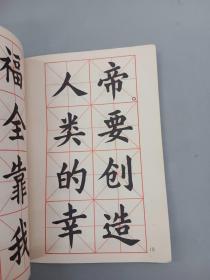 帝。要创造
人类的幸
福全靠我